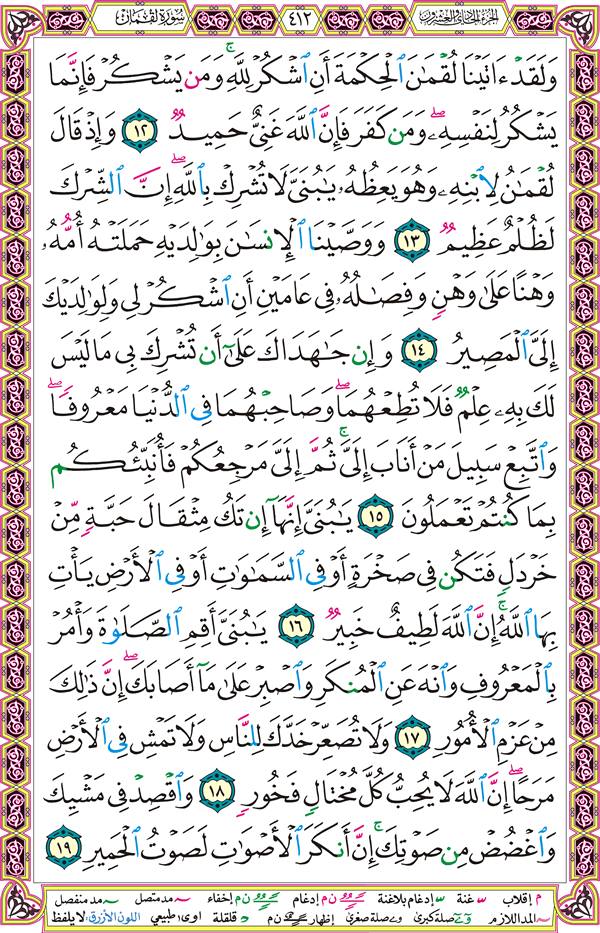 الجزء الحادي والعشرون ٤١٢ سورة لقمان
وَلَقَدۡ ءَاتَيۡنَا لُقۡمَٰنَ ٱلۡحِكۡمَةَ أَنِ ٱشۡكُرۡ لِلَّهِۚ وَمَن يَشۡكُرۡ فَإِنَّمَا
يَشۡكُرُ لِنَفۡسِهِۦۖ وَمَن كَفَرَ فَإِنَّ ٱللَّهَ غَنِيٌّ حَمِيدٞ ١٢ وَإِذۡ قَالَ
لُقۡمَٰنُ لِٱبۡنِهِۦ وَهُوَ يَعِظُهُۥ يَٰبُنَيَّ لَا تُشۡرِكۡ بِٱللَّهِۖ إِنَّ ٱلشِّرۡكَ
لَظُلۡمٌ عَظِيمٞ ١٣ وَوَصَّيۡنَا ٱلۡإِنسَٰنَ بِوَٰلِدَيۡهِ حَمَلَتۡهُ أُمُّهُۥ
وَهۡنًا عَلَىٰ وَهۡنٖ وَفِصَٰلُهُۥ فِي عَامَيۡنِ أَنِ ٱشۡكُرۡ لِي وَلِوَٰلِدَيۡكَ
إِلَيَّ ٱلۡمَصِيرُ ١٤ وَإِن جَٰهَدَاكَ عَلَىٰٓ أَن تُشۡرِكَ بِي مَا لَيۡسَ
لَكَ بِهِۦ عِلۡمٞ فَلَا تُطِعۡهُمَاۖ وَصَاحِبۡهُمَا فِي ٱلدُّنۡيَا مَعۡرُوفٗاۖ
وَٱتَّبِعۡ سَبِيلَ مَنۡ أَنَابَ إِلَيَّۚ ثُمَّ إِلَيَّ مَرۡجِعُكُمۡ فَأُنَبِّئُكُم
بِمَا كُنتُمۡ تَعۡمَلُونَ ١٥ يَٰبُنَيَّ إِنَّهَآ إِن تَكُ مِثۡقَالَ حَبَّةٖ مِّنۡ
خَرۡدَلٖ فَتَكُن فِي صَخۡرَةٍ أَوۡ فِي ٱلسَّمَٰوَٰتِ أَوۡ فِي ٱلۡأَرۡضِ يَأۡتِ
بِهَا ٱللَّهُۚ إِنَّ ٱللَّهَ لَطِيفٌ خَبِيرٞ ١٦ يَٰبُنَيَّ أَقِمِ ٱلصَّلَوٰةَ وَأۡمُرۡ
بِٱلۡمَعۡرُوفِ وَٱنۡهَ عَنِ ٱلۡمُنكَرِ وَٱصۡبِرۡ عَلَىٰ مَآ أَصَابَكَۖ إِنَّ ذَٰلِكَ
مِنۡ عَزۡمِ ٱلۡأُمُورِ ١٧ وَلَا تُصَعِّرۡ خَدَّكَ لِلنَّاسِ وَلَا تَمۡشِ فِي ٱلۡأَرۡضِ
مَرَحًاۖ إِنَّ ٱللَّهَ لَا يُحِبُّ كُلَّ مُخۡتَالٖ فَخُورٖ ١٨ وَٱقۡصِدۡ فِي مَشۡيِكَ
وَٱغۡضُضۡ مِن صَوۡتِكَۚ إِنَّ أَنكَرَ ٱلۡأَصۡوَٰتِ لَصَوۡتُ ٱلۡحَمِيرِ ١٩
م إقلاب غنة إدغام بلاغنة ن م إدغام ن م إخفاء مد متصل مد منفصل
المد اللازم صلة كبرى صلة صغرى إظهار ن م قلقلة اوى: طبيعي اللون الأزرق: لا يلفظ